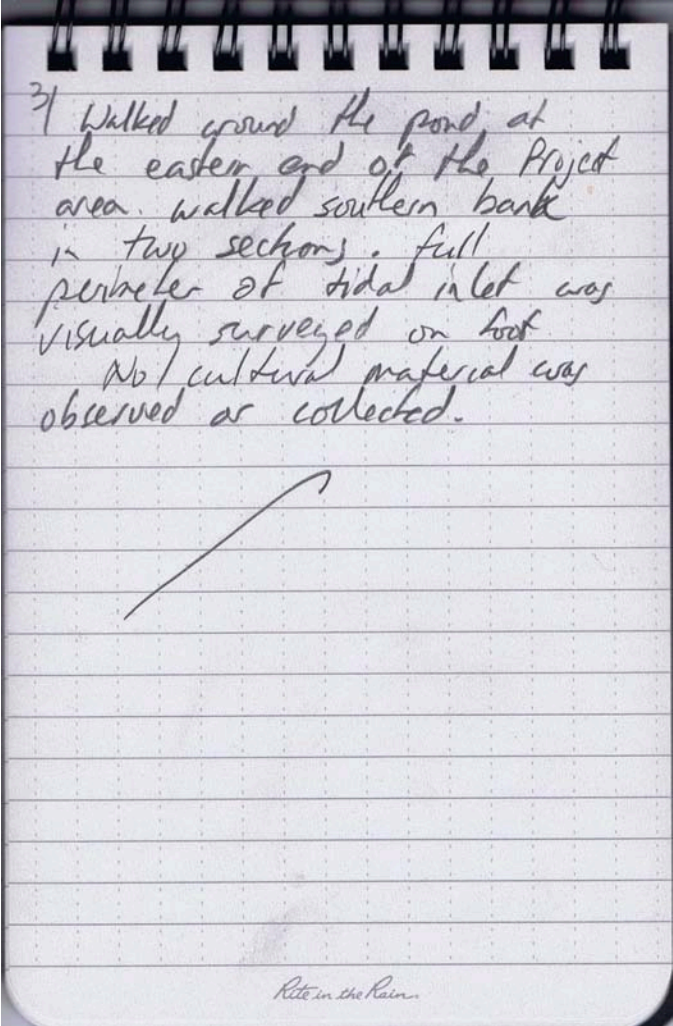 3/ Walked around the pond at
the eastern end of the Project
area. walked southern bank
in two sections. full
perimeter of tidal inlet was
visually surveyed on foot.
No cultural material was
observed or collected.
Rite in the Rain